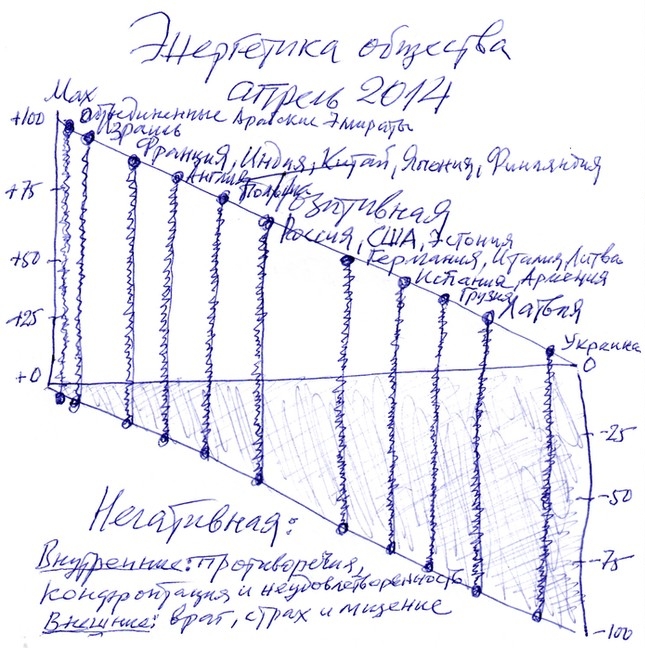 Энергетика общества
апрель 2014
Max
+100
Объединенные Арабские Эмираты
Израиль
Франция, Индия, Китай, Япония, Финляндия
+75
Англия
Польша
Позитивная
Россия, США, Эстония
+50
Германия, Италия, Литва
Испания, Армения
Грузия
+25
Латвия
Украина
0
+0
-25
-50
Негативная:
-75
Внутренние: противоречия,
конфронтация и неудовлетворенность
Внешние: враг, страх и мщение
-100